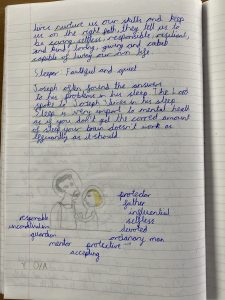 lives nurture us our skills and keep
us on the right path, they tell us to
be caring selfless, responsible, resilient,
and kind loving, giving and
capable of living our own life
Sleeper: Faithful and quiet
Joseph often found the answers
to his problems in his sleep. The Lord
spoke to Joseph 3 times in his sleep.
Sleep is very import to mental health
as if you don't get the correct amount
of sleep your brain doesn't work as
efficiently as it should.
protector
father
influential
selfless
devoted
ordanary man
responsible
unconditional
guardian
mentor
protective
accepting